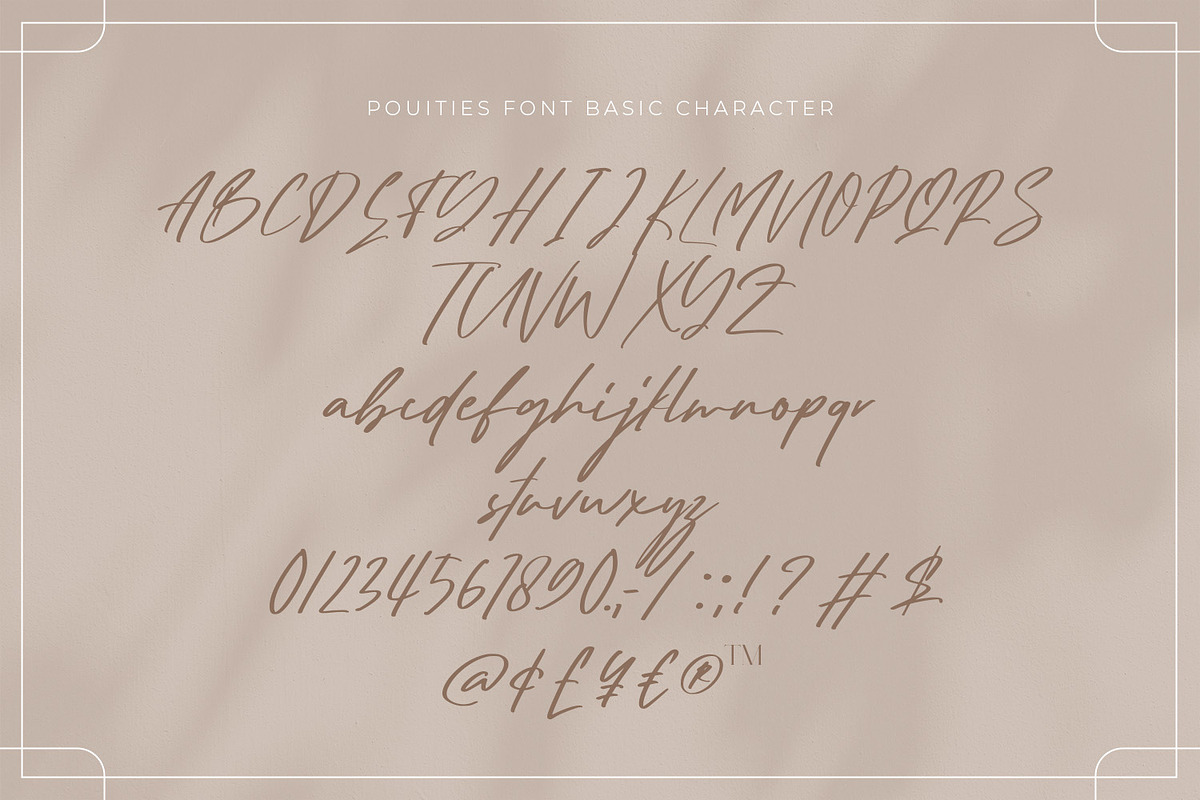 POUITIES FONT BASIC CHARACTER
ABCDEFGHIJKLMNOPQRS
TUVWXYZ
abcdefghijklmnopqr
stuvwxyz
01234567890.,-/:;!?#$
@¢£¥€®™